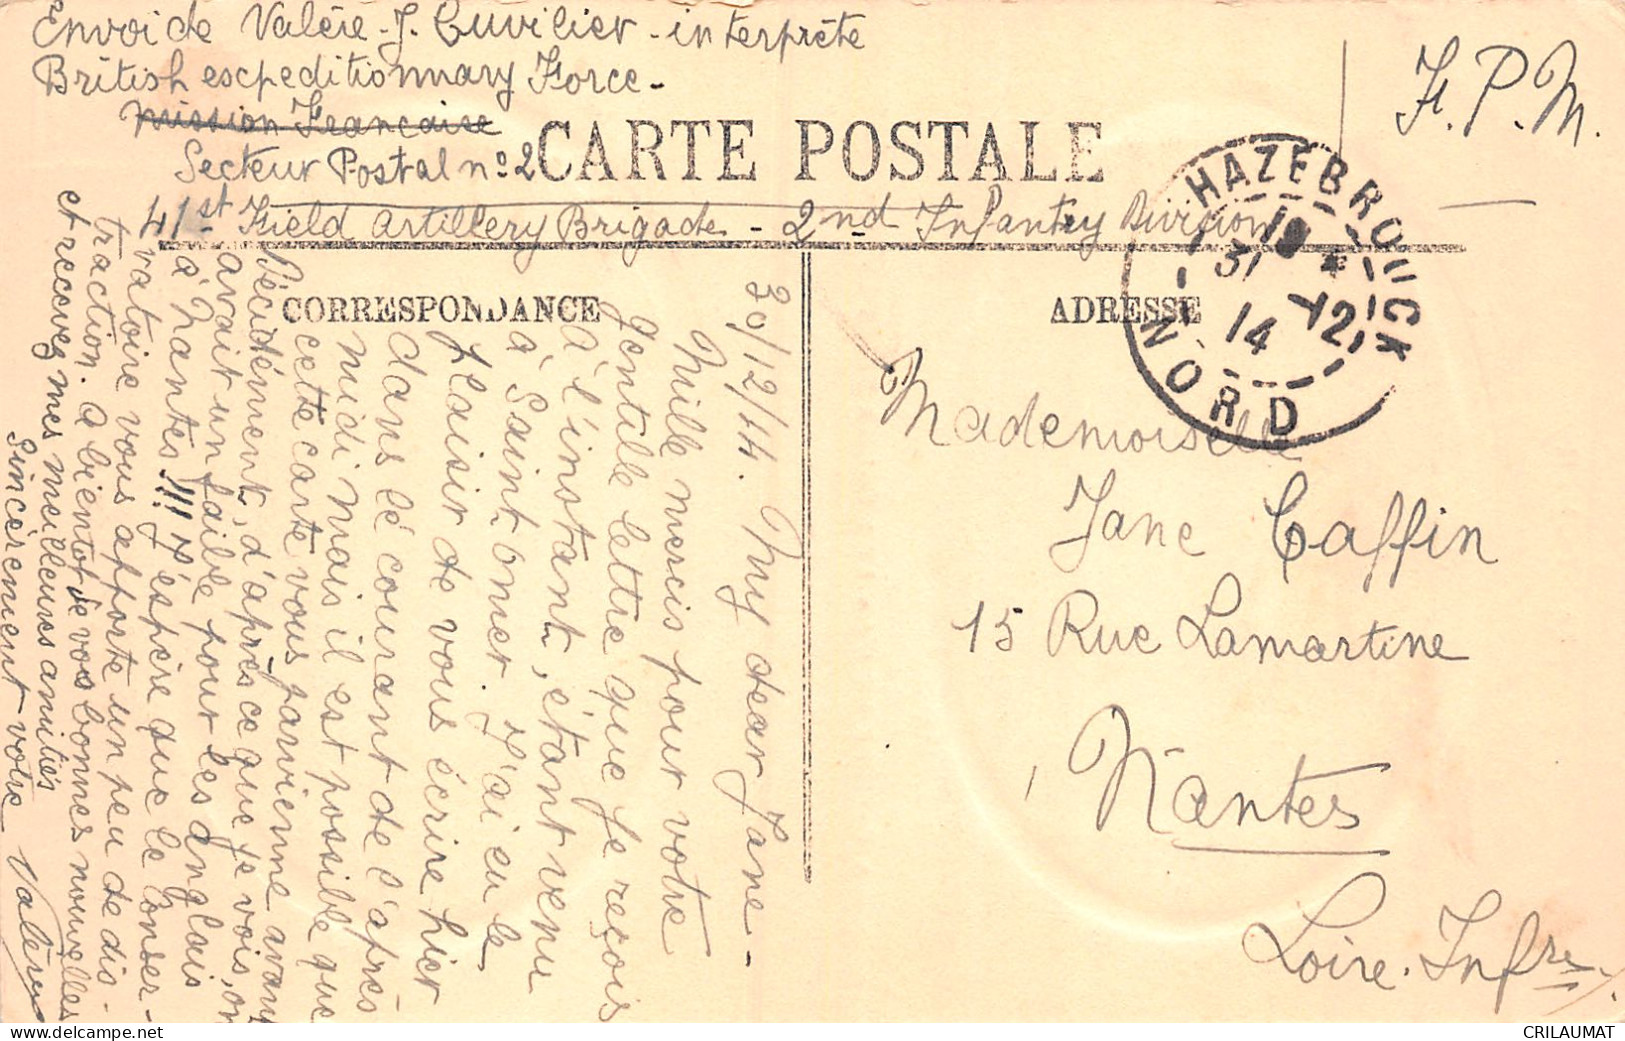 Envoi de Valère-J. Cuvilier - interprète
British escpeditionnary Force -
mission Française
Secteur Postal n° 2
41st Field Artillery Brigade - 2nd Infantry Division
F. P. M.
CARTE POSTALE
HAZEBROUCK
31 12
14
NORD
CORRESPONDANCE
ADRESSE
30/12/14. My dear Jane -
Mille mercis pour votre
gentille lettre que je reçois
à l'instant, étant venu
à Saint Omer. J'ai eu le
plaisir de vous écrire hier
dans lé courant de l'après
midi mais il est possible que
cette carte vous parvienne avant
Décidément, d'après ce que je vois, on
avait un faible pour les Anglais
à Nantes !!!! J'espère que le Conser-
vatoire vous apporte un peu de dis-
traction. A bientôt de vos bonnes nouvelles
et recevez mes meilleures amitiés
Sincèrement votre Valère
Mademoiselle
Jane Caffin
15 Rue Lamartine
Nantes
Loire-Infre
CRILAUMAT